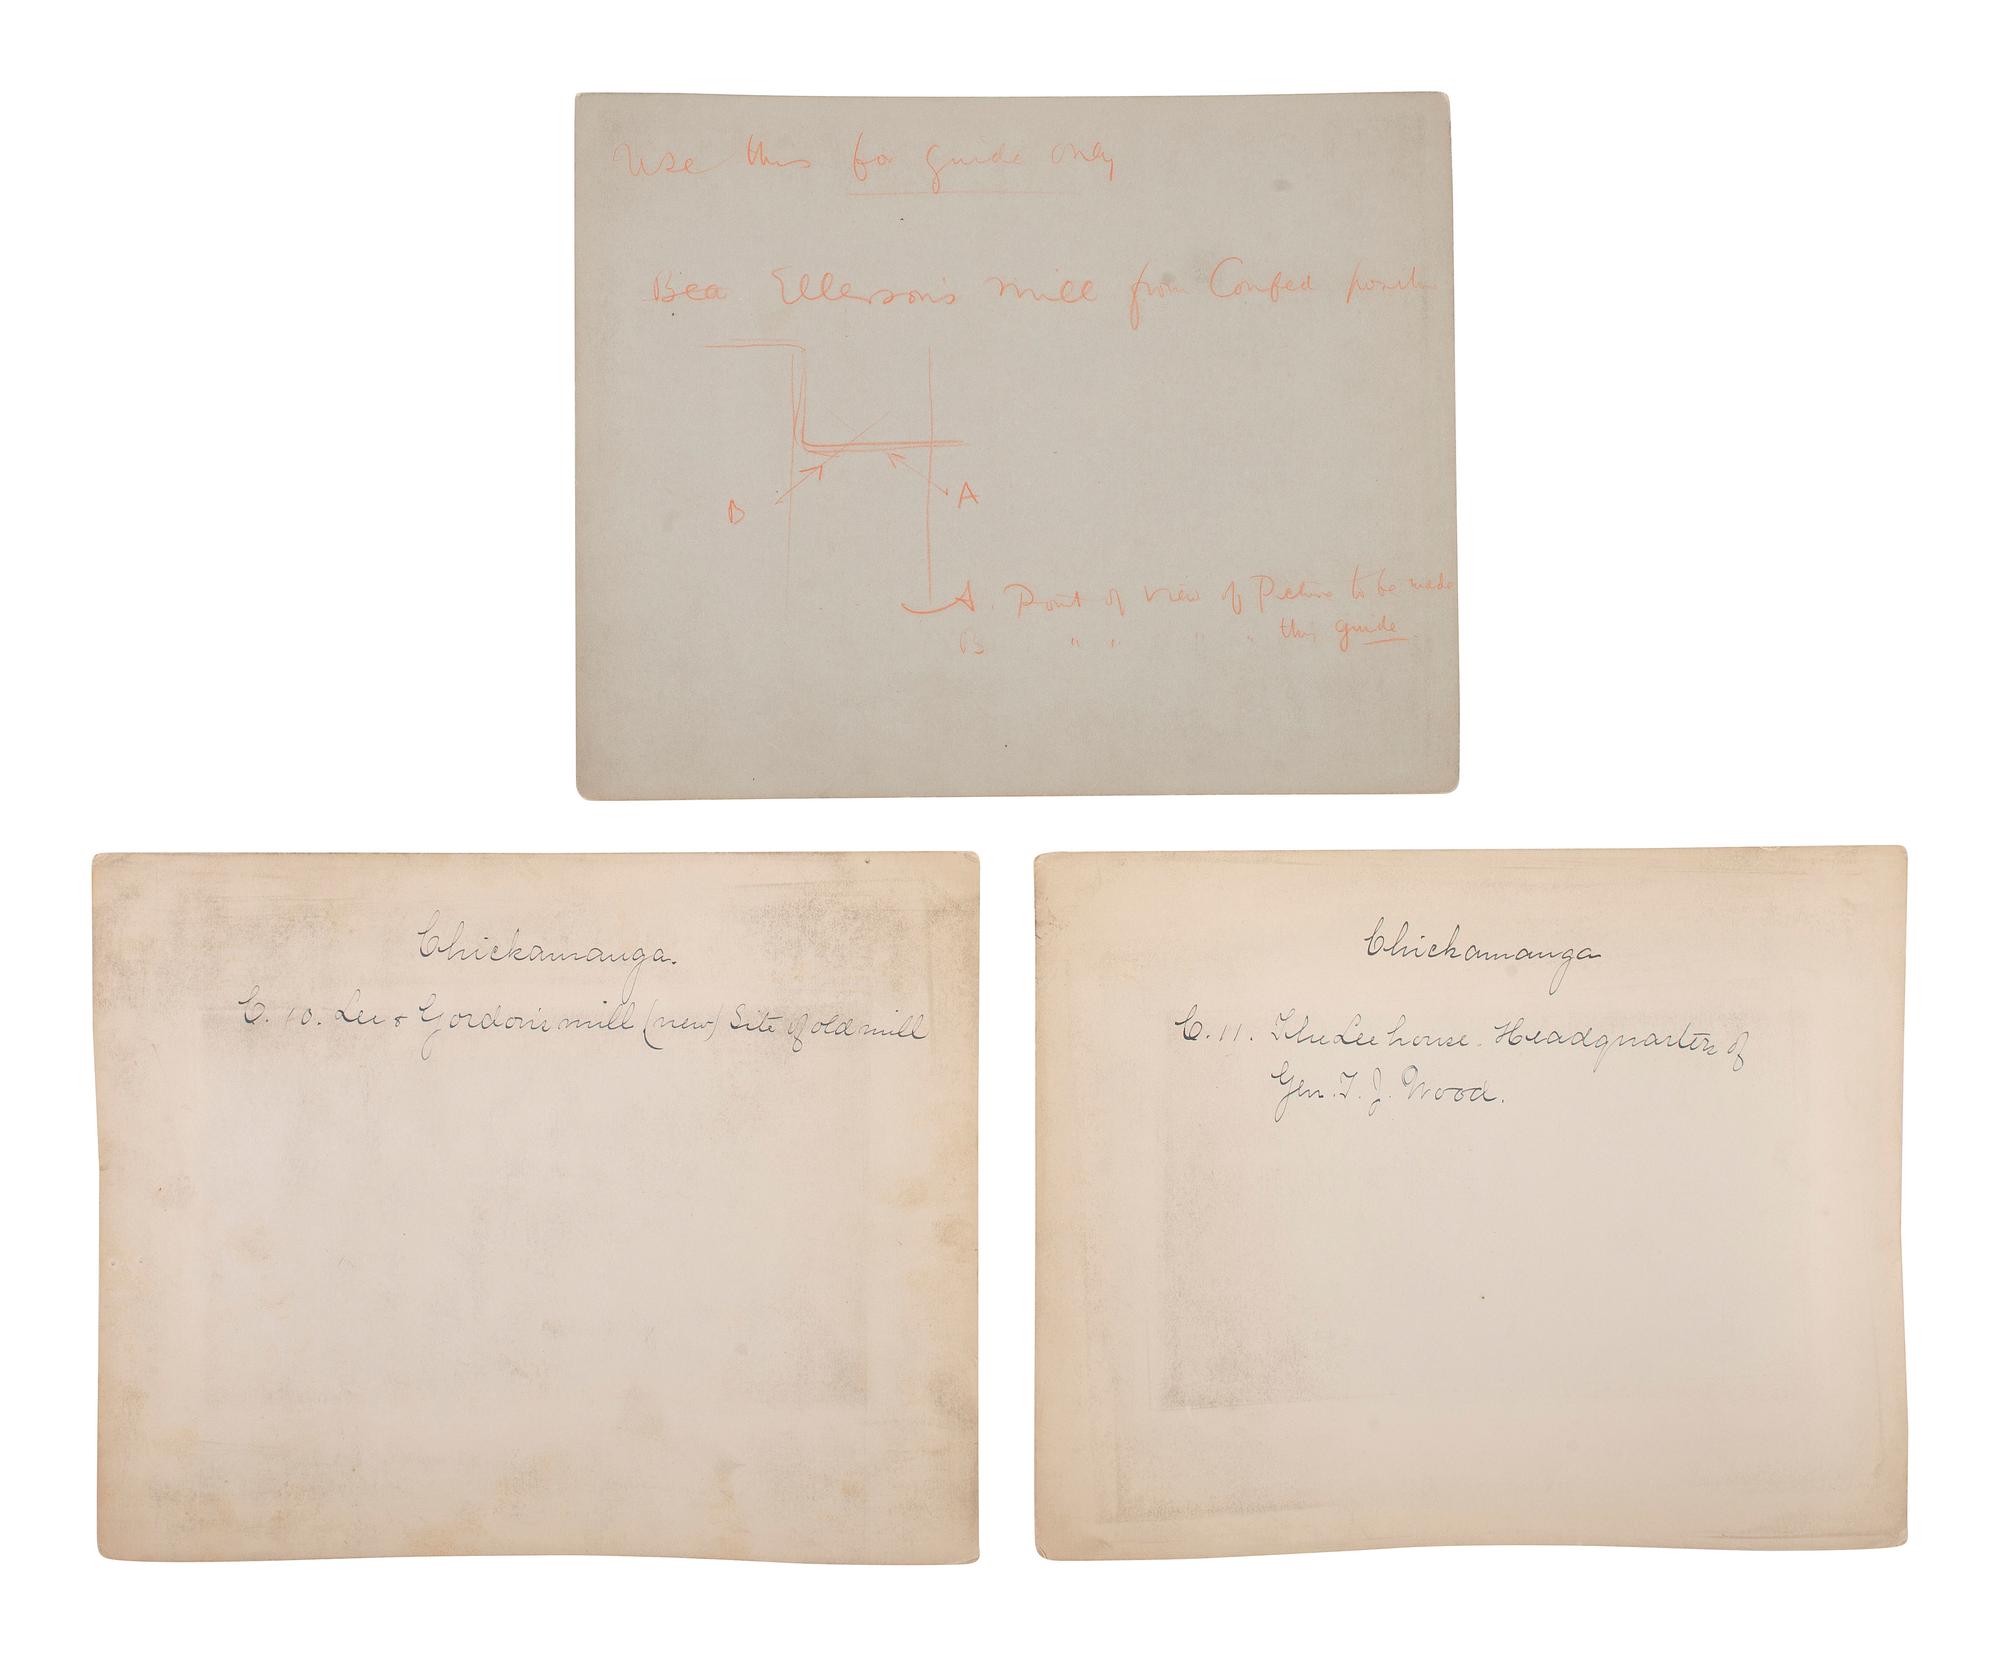 Use this for guide only
Bea Ellerson's mill from Confed positn
B
A
A. Point of View of Picture to be made
B " " " " this guide
Chickamauga.
C. 10. Lee & Gordon's mill (new) Site of old mill
Chickamauga
C. 11. The Lee house. Headquarters of
Gen. T. J. Wood.